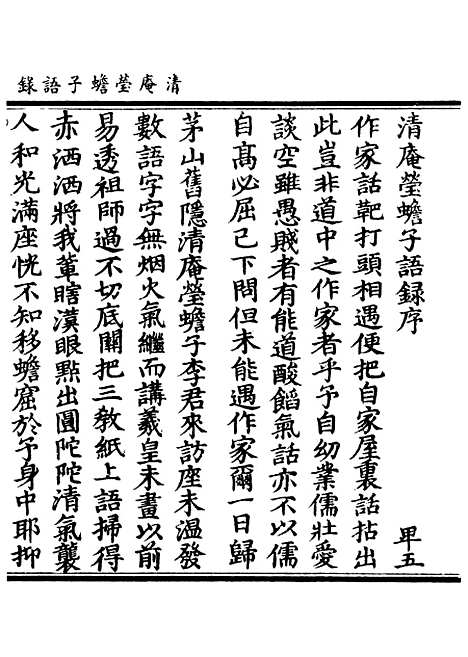 清庵瑩蟾子語錄
清庵瑩蟾子語録序　卑五
作家話靶打頭相遇便把自家屋裏話拈出
此豈非道中之作家者乎予自幼業儒壯愛
談空雖愚賤者有能道酸餡氣話亦不以儒
自高必屈己下問但未能遇作家爾一日歸
茅山舊隱清庵瑩蟾子李君來訪座未温發
數語字字無烟火氣繼而講羲皇未畫以前
易透祖師過不切底關把三教紙上語掃得
赤洒洒將我輩瞎漢眼點出圓陀陀清氣襲
人和光滿座恍不知移蟾窟於予身中耶抑